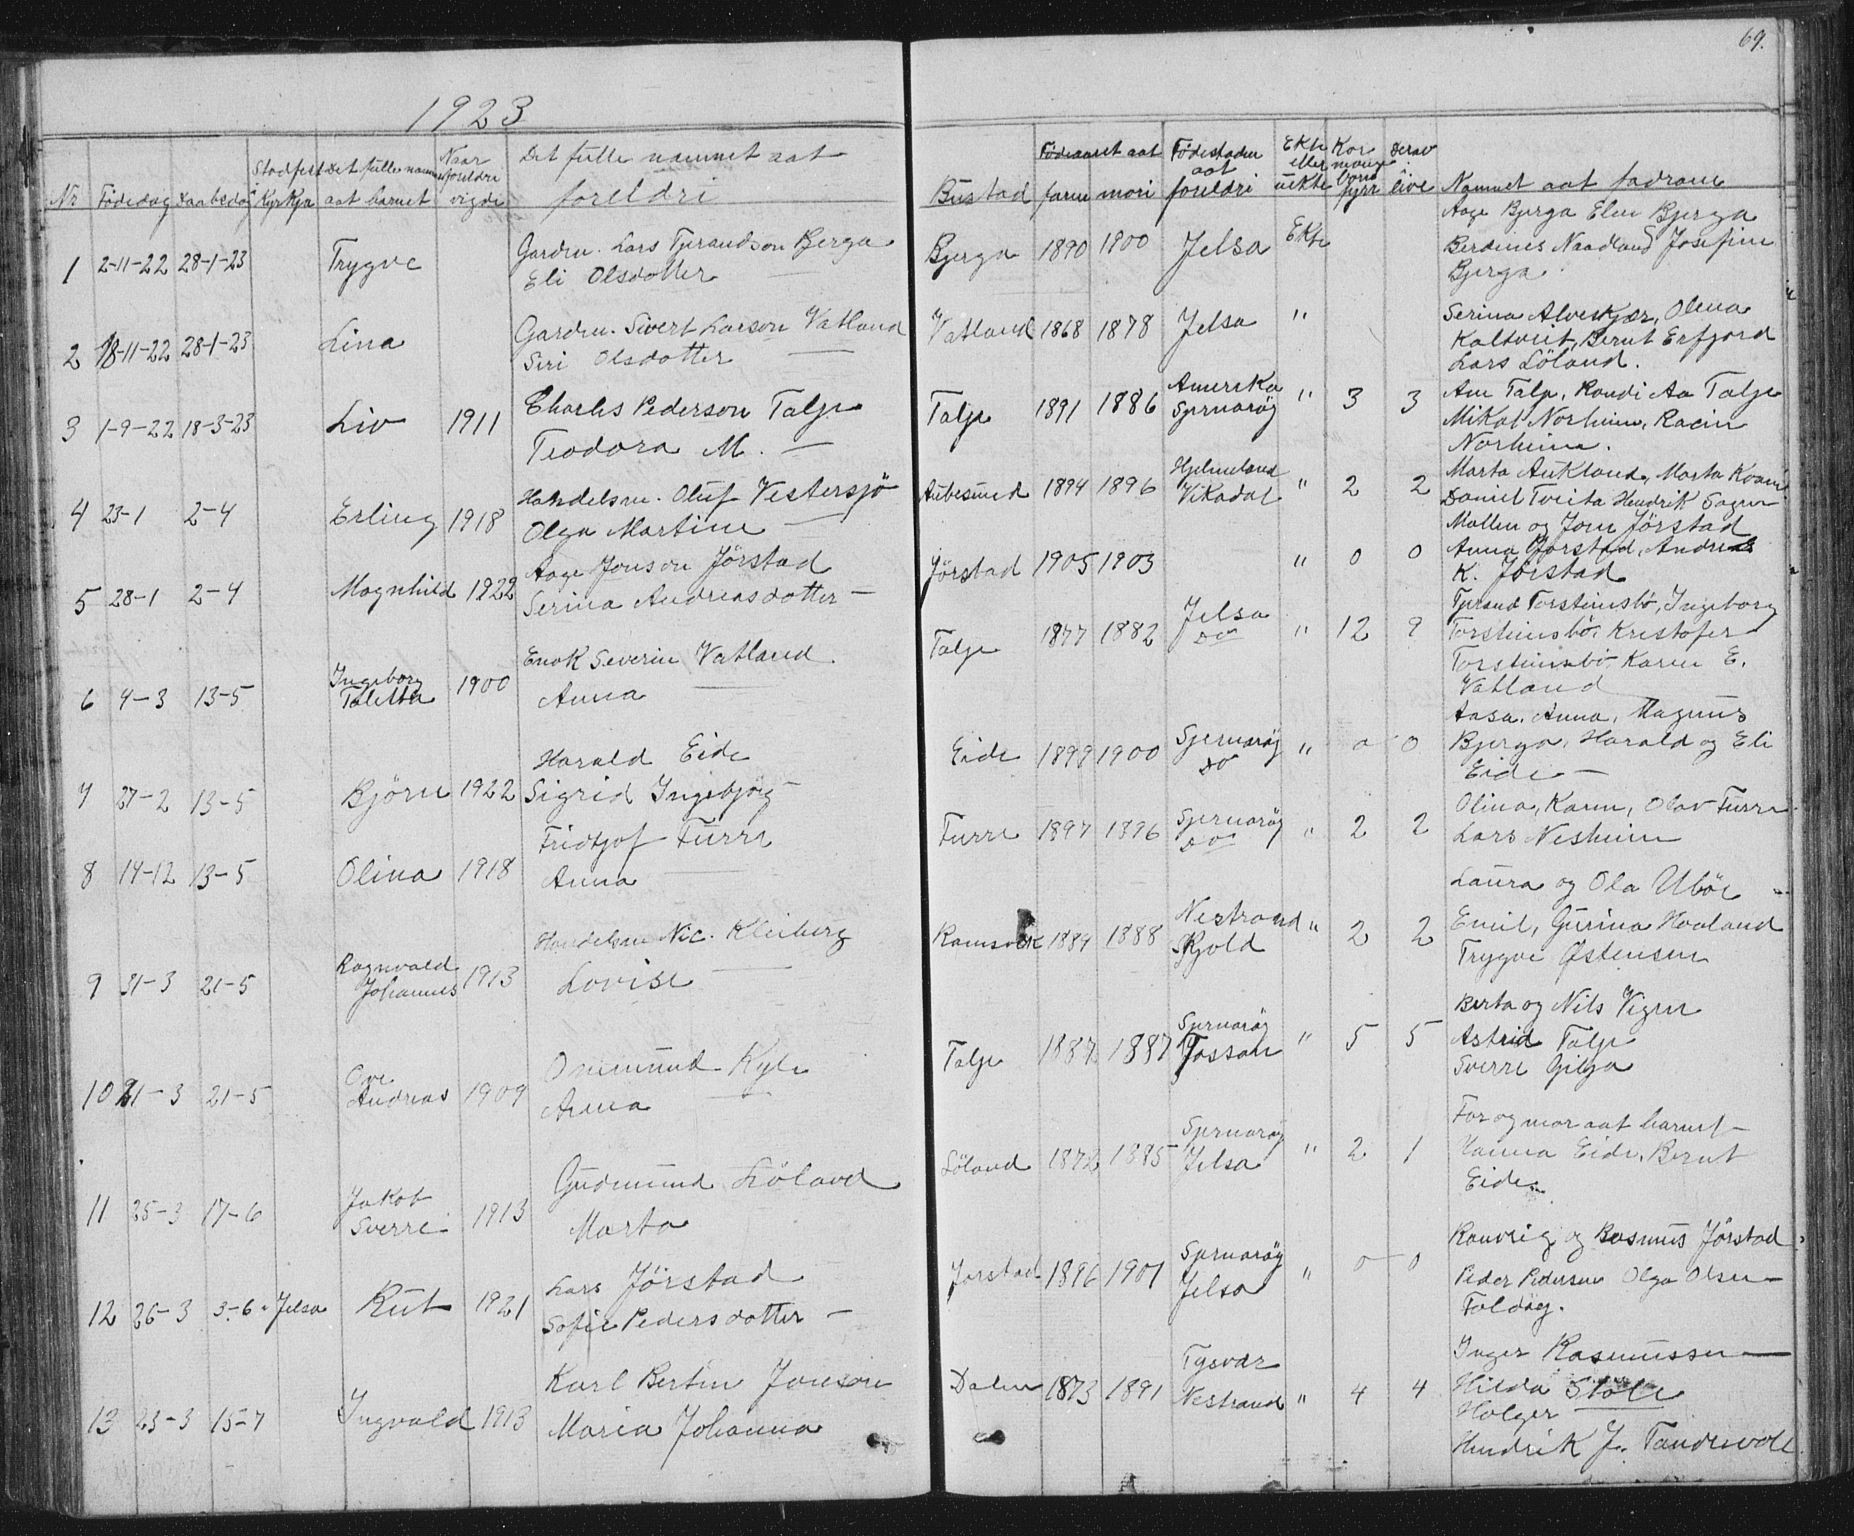 69.
1923
Nr Fødedag Daabsdag Stadfest Kyrkja Det fulle namnet aat barnet Naar foreldri vigde Det fulle namnet aat foreldri
Bustad Fødeaaret aat faren mori Fødestaden aat foreldri Ekte eller uekte Kor mange born fyrr Derav i live Namnet aat fadrane
1 2-11-22 28-1-23 Trygve Gardm. Lars Tjerandson Bjerga
Eli Olsdotter —
Bjerga 1890 1900 Jelsa Ekte
Aage Bjerga Elen Bjerga
Berdines Naadland Josefine
Bjerga.
2 18-11-22 28-1-23 Lina Gardm. Sivert Larson Vatland
Siri Olsdotter —
Vatland 1868 1878 Jelsa "
Serina Alveskjær, Olena
Kaltveit, Bernt Erfjord
Lars Löland.
3 1-9-22 18-3-23 Liv 1911 Charles Pederson Talje
Teodora M. —
Talje 1891 1886 Amerika Sjernarøy " 3 3
Talje, Randi Aa Talje
Mikal Norheim,
Norheim.
4 23-1 2-4 Erling 1918 Handelsm. Oluf Vestersjö
Olga Martine —
Aubesund 1894 1896 Hjelmeland Vikadal " 2 2
Marta Aukland, Marta Kvam
Daniel Tveita Hendrik
5 28-1 2-4 Magnhild 1922 Aage Jonson Jörstad
Serina Andreasdotter —
Jörstad 1905 1903 " 0 0
Mallin og Jone Jörstad
Anna Jorstad, Andreas
K. Jörstad
6 4-3 13-5 Ingeborg Taletta 1900 Enok Severin Vatland.
Anna —
Talje 1877 1882 Jelsa do " 12 9
Tjerand Torsteinsbö, Ingeborg
Torsteinsbö, Kristofer
Torsteinsbö Karen E.
Vatland
7 27-2 13-5 Björn 1922 Harald Eide
Sigrid Ingebjörg —
Eide 1899 1900 Sjernarøy do " 0 0
Aasa, Anna, Magnus
Bjerga, Harald og Eli
Eide —
8 14-12 13-5 Olina 1918 Fridtjof Furre
Anna —
Furre 1897 1896 Sjernarøy do " 2 2
Olina, Karen, Olav Furre
Lars Nesheim
9 31-3 21-5 Ragnvald Johannes 1913 Handelsm Nic. Kleiberg
Lovise —
Ramsvik 1889 1888 Nestrand Skjold " 2 2
Laura og Ola Uböe
Emil, Gurina Hovland
Trygve Østensen
10 21-3 21-5 Ove Andreas 1909 Ommund Kyle
Anna —
Talje 1887 1887 Sjernarøy Fossan " 5 5
Berta og Nils Vigen
Astrid Talje
Sverre Gilja
11 25-3 17-6 Jakob Sverre 1913 Gudmund Löland
Marta
Löland 1872 1885 Sjernarøy Jelsa " 2 1
Far og mor aat barnet —
Hanna Eide, Bernt
Eide
12 26-3 3-6 Jelsa Rut 1921 Lars Jörstad
Sofie Pedersdotter —
Jorstad 1896 1901 Sjernarøy Jelsa " 0 0
Ranveig og Rasmus Jörstad
Peder Pedersen Olga Olsen —
Foldøy.
13 23-3 15-7 Ingvald 1913 Karl Bertin Jonson
Maria Johanna
Dalen 1873 1891 Tysvær Nestrand " 4 4
Inger Rasmussen —
Hilda Støle
Holger
Hendrik J. Tandevoll